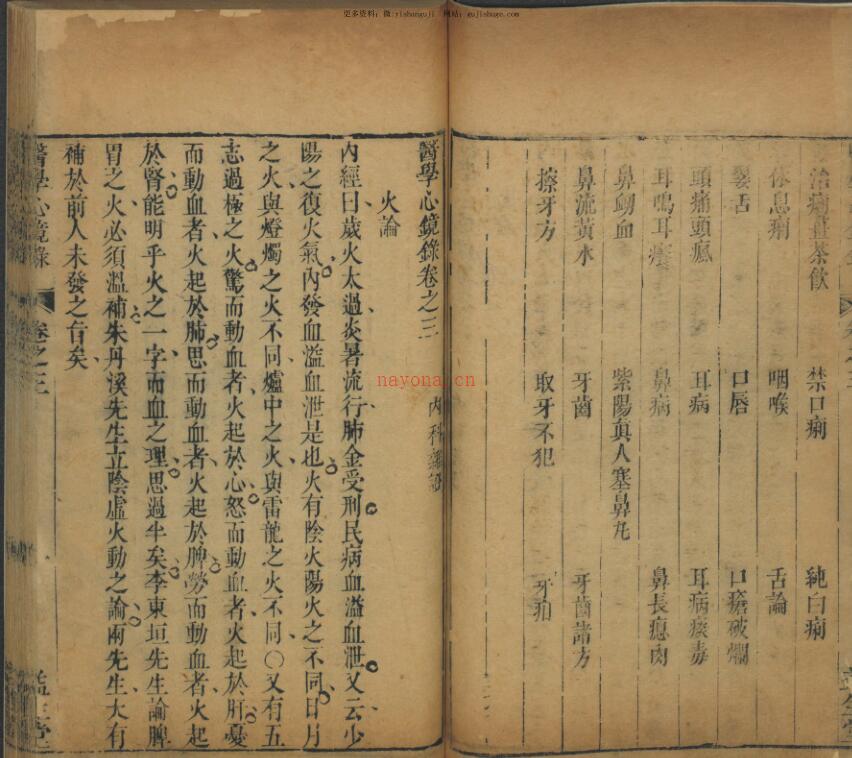 更多资料：微:yishanguji 网站：gujishuge.com
治痢薑茶飲 禁口痢 純白痢
休息痢 咽喉 舌論
口唇 口瘡破爛
頭痛頭瘋 耳病 耳病痰毒
耳鳴耳癢 鼻病 鼻長瘜肉
鼻衂血 紫陽真人塞鼻丸
鼻流黃水 牙齒 牙齒諸方
擦牙方 取牙不犯 牙疳
醫學心鏡錄卷之三 內科
火論
內經曰歲火太過炎暑流行肺金受刑民病血溢血泄又云少
陽之復火氣內發血溢血泄是也火有陰火陽火之不同日月
之火與燈燭之火不同爐中之火與雷龍之火不同○又有五
志過極之火驚而動血者火起於心怒而動血者火起於肝憂
而動血者火起於肺思而動血者火起於脾勞而動血者火起
於腎能明乎火之一字而血之理思過半矣李東垣先生論脾
胃之火必須溫補朱丹溪先生立陰虛火動之論兩先生大有
補於前人未發之旨矣
醫學心鏡錄 卷之三
nayona.cn